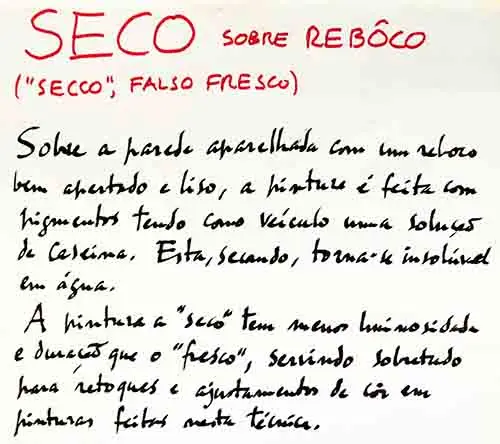 SECO SOBRE REBÔCO
("SECCO", FALSO FRESCO)
Sobre a parede aparelhada com um reboco
bem apertado e liso, a pintura é feita com
pigmentos tendo como veículo uma solução
de caseína. Esta, secando, torna-se insolúvel
em água.
A pintura a "seco" tem menor luminosidade
e duração que o "fresco", servindo sobretudo
para retoques e ajustamentos de côr em
pinturas feitas nesta técnica.